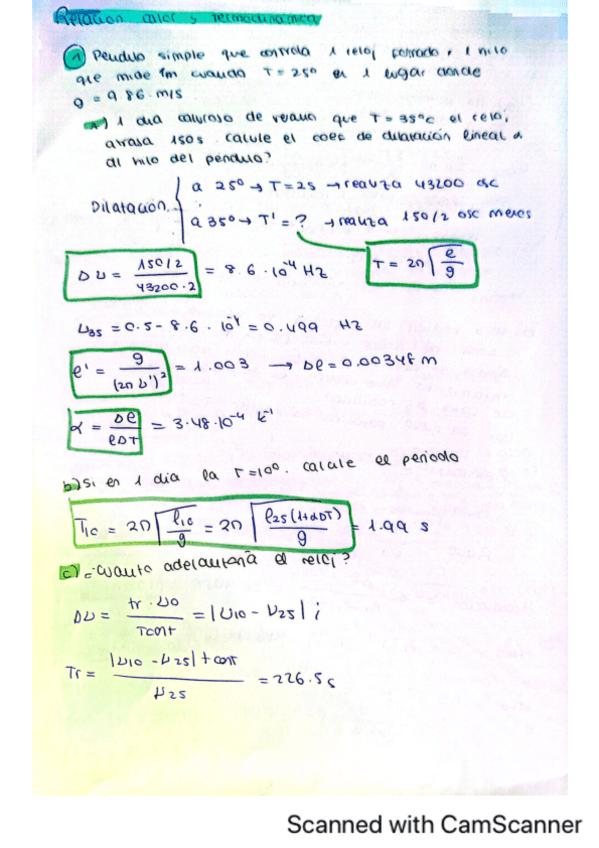 Relación calor y termodinámica
① Péndulo simple que controla 1 reloj formado x 1 hilo
que mide 1m cuando T = 25º en 1 lugar donde
g = 9.86 m/s
a) 1 día caluroso de verano que T = 35ºc el reloj
atrasa 150s. calcule el coef de dilatación lineal α
dl hilo del péndulo?
Dilatación
a 25º → T = 2s → realiza 43200 osc
a 35º → T' = ? → realiza 150/2 osc menos
Δν = (150/2)/(43200·2) = 8.6·10⁻⁴ Hz
T = 2π√(l/g)
ν₃₅ = 0.5 - 8.6·10⁻⁴ = 0.499 Hz
l' = g/(2π ν')² = 1.003 → Δl = 0.00348 m
α = Δl/(lΔT) = 3.48·10⁻⁴ k⁻¹
b) Si en 1 día la T = 10º. calcule el periodo
T₁₀ = 2π√(l₁₀/g) = 2π√(l₂₅(1+αΔT)/g) = 1.99 s
c) ¿Cuánto adelantaría el reloj?
Δν = (tr·ν₀)/Tcont = |ν₁₀ - ν₂₅| ;
Tr = (|ν₁₀ - ν₂₅| tcont)/ν₂₅ = 226.5s
Scanned with CamScanner